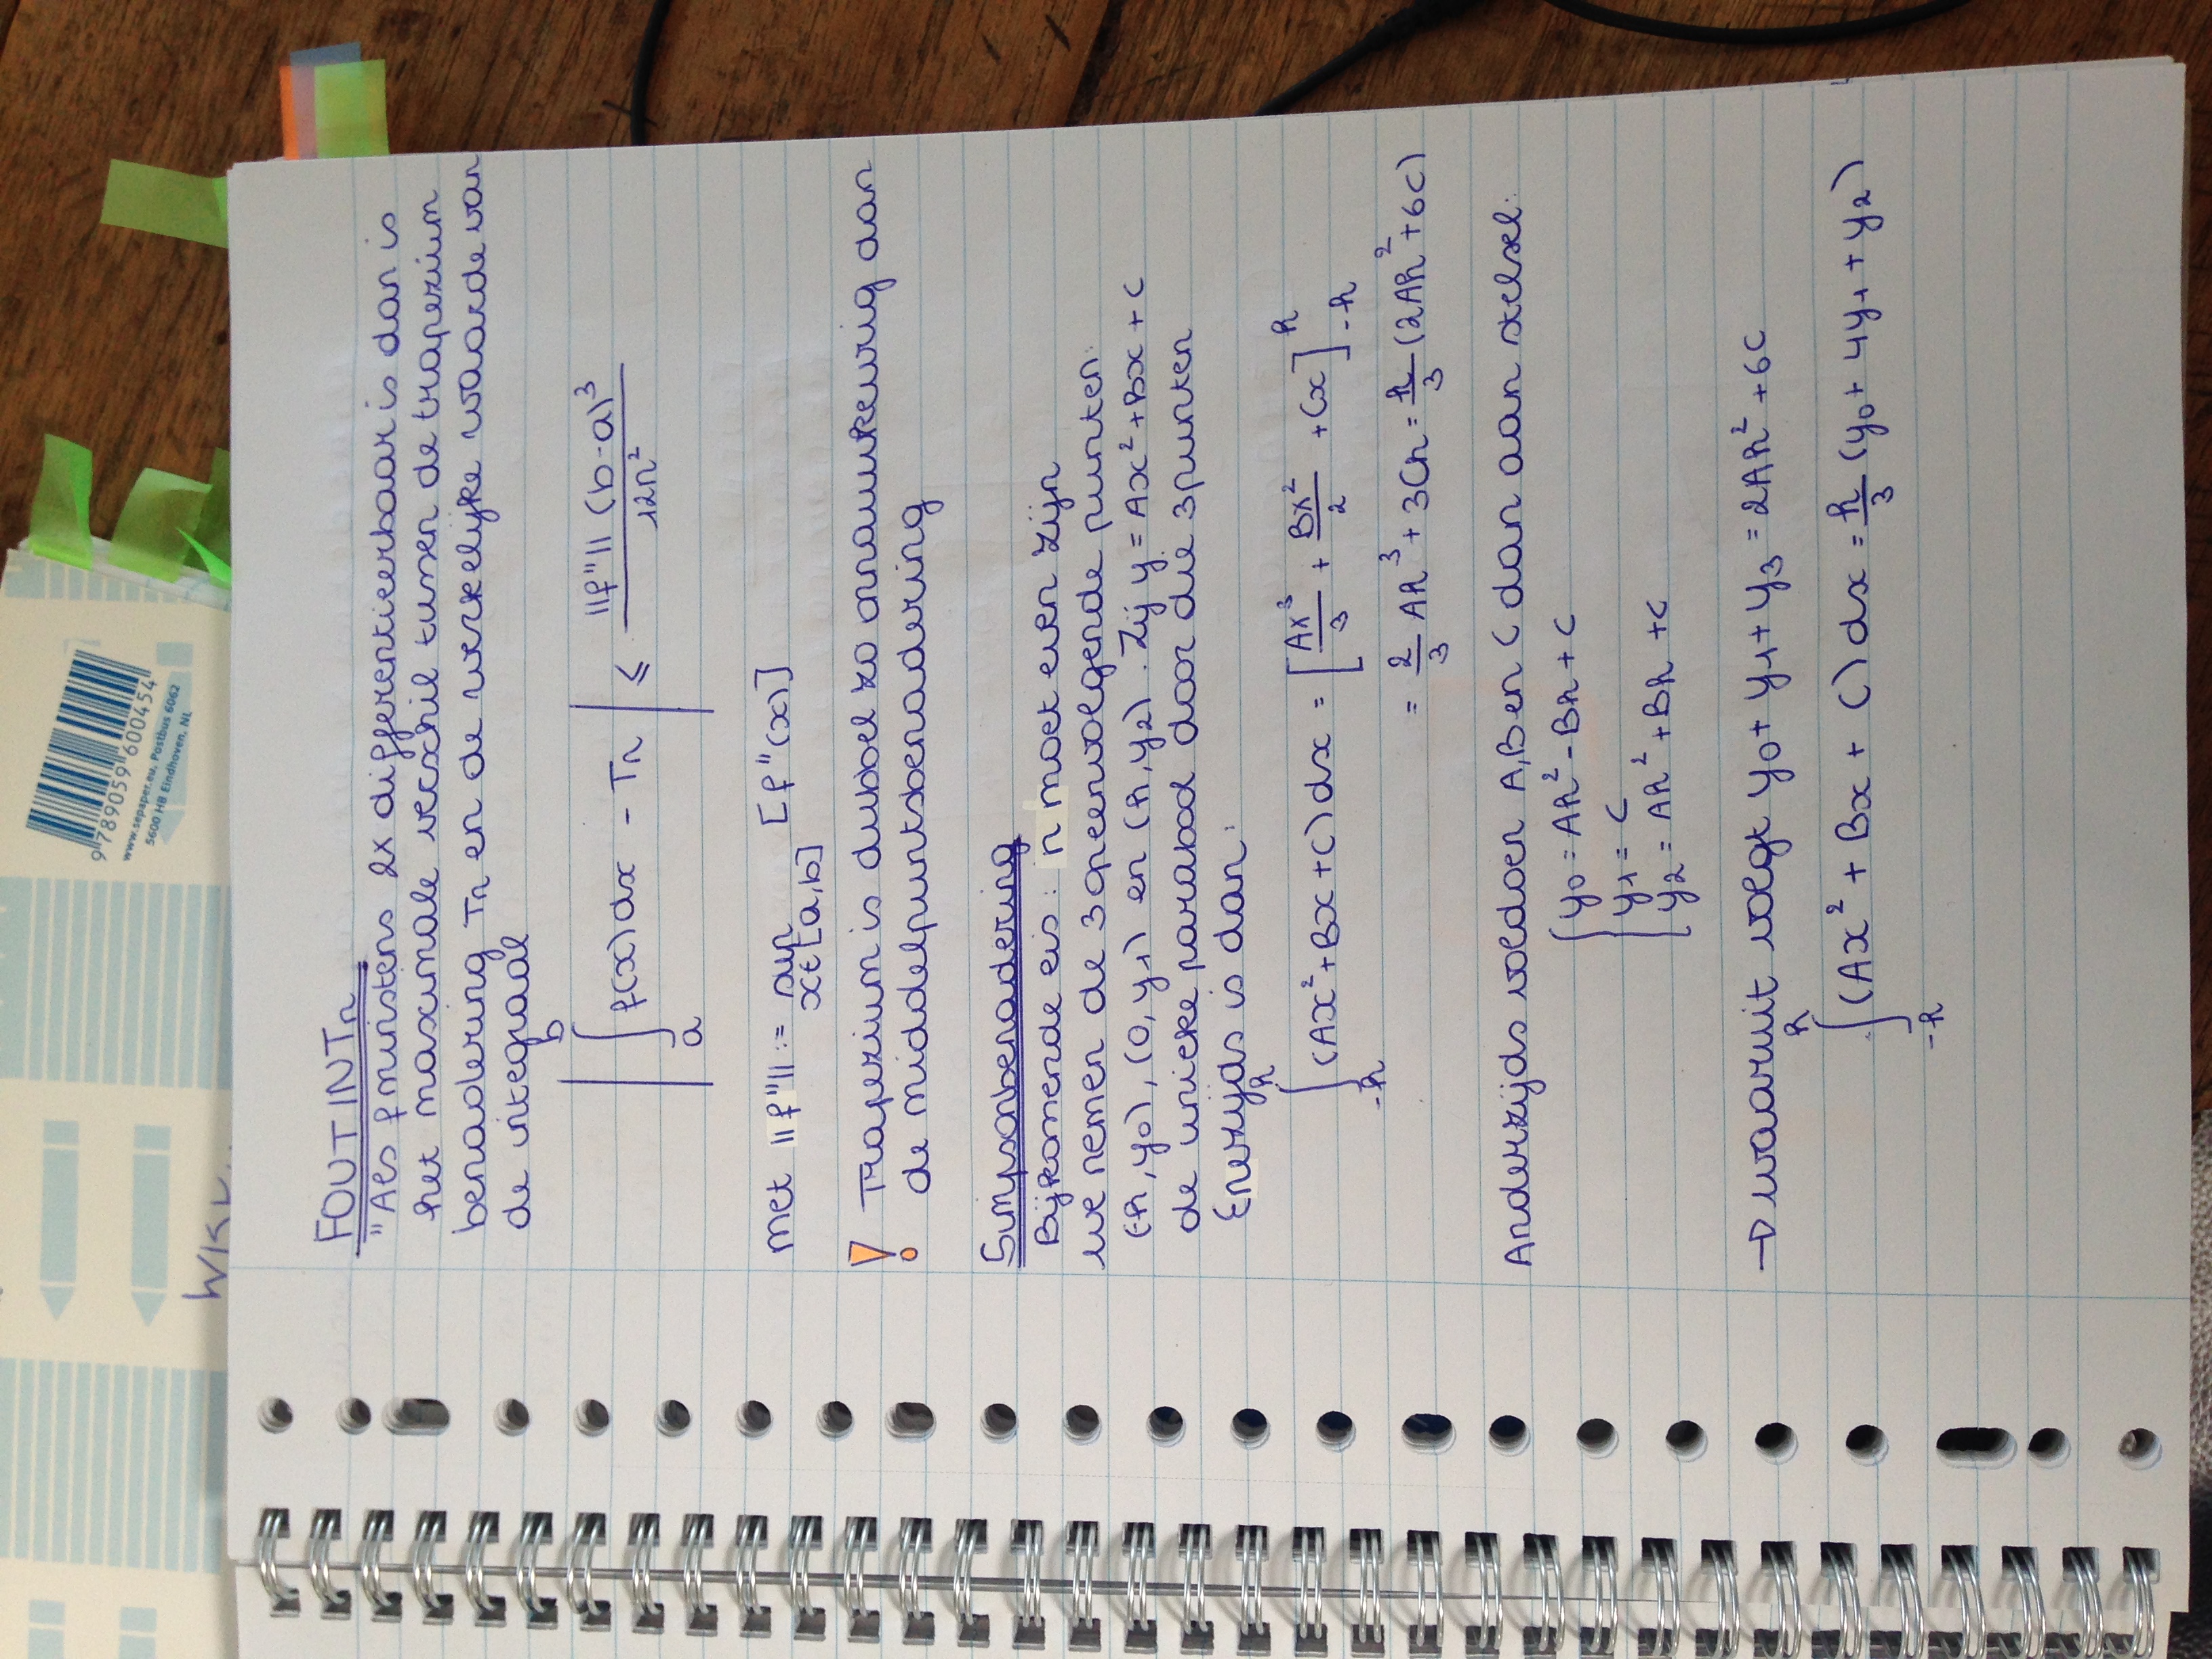 9 789059 600454
www.sepaper.eu, Postbus 6062
5600 HB Eindhoven, NL
FOUT IN Tn
"Als f minstens 2x differentieerbaar is dan is
het maximale verschil tussen de trapezium
benadering Tn en de werkelijke waarde van
de integraal
| ∫_a^b f(x)dx - Tn | ⩽ ||f"|| (b-a)³ / 12n²
met ||f"|| := sup x∈[a,b] [f"(x)]
! Trapezium is dubbel zo onnauwkeurig dan
de middelpuntsbenadering
Simpsonbenadering
Bijkomende eis: n moet even zijn
we nemen de 3 opeenvolgende punten:
(-h, y0), (0, y1) en (h, y2). Zij y = Ax² + Bx + C
de unieke parabool door die 3 punten
Enerzijds is dan:
∫_-h^h (Ax² + Bx + C) dx = [Ax³/3 + Bx²/2 + Cx]_-h^h
= 2/3 Ah³ + 3Ch = h/3 (2Ah² + 6C)
Anderzijds voldoen A, B en C dan aan stelsel:
{ y0 = Ah² - Bh + C
y1 = C
y2 = Ah² + Bh + C
→ waaruit volgt y0 + y1 + y3 = 2Ah² + 6C
∫_-h^h (Ax² + Bx + C) dx = h/3 (y0 + 4y1 + y2)